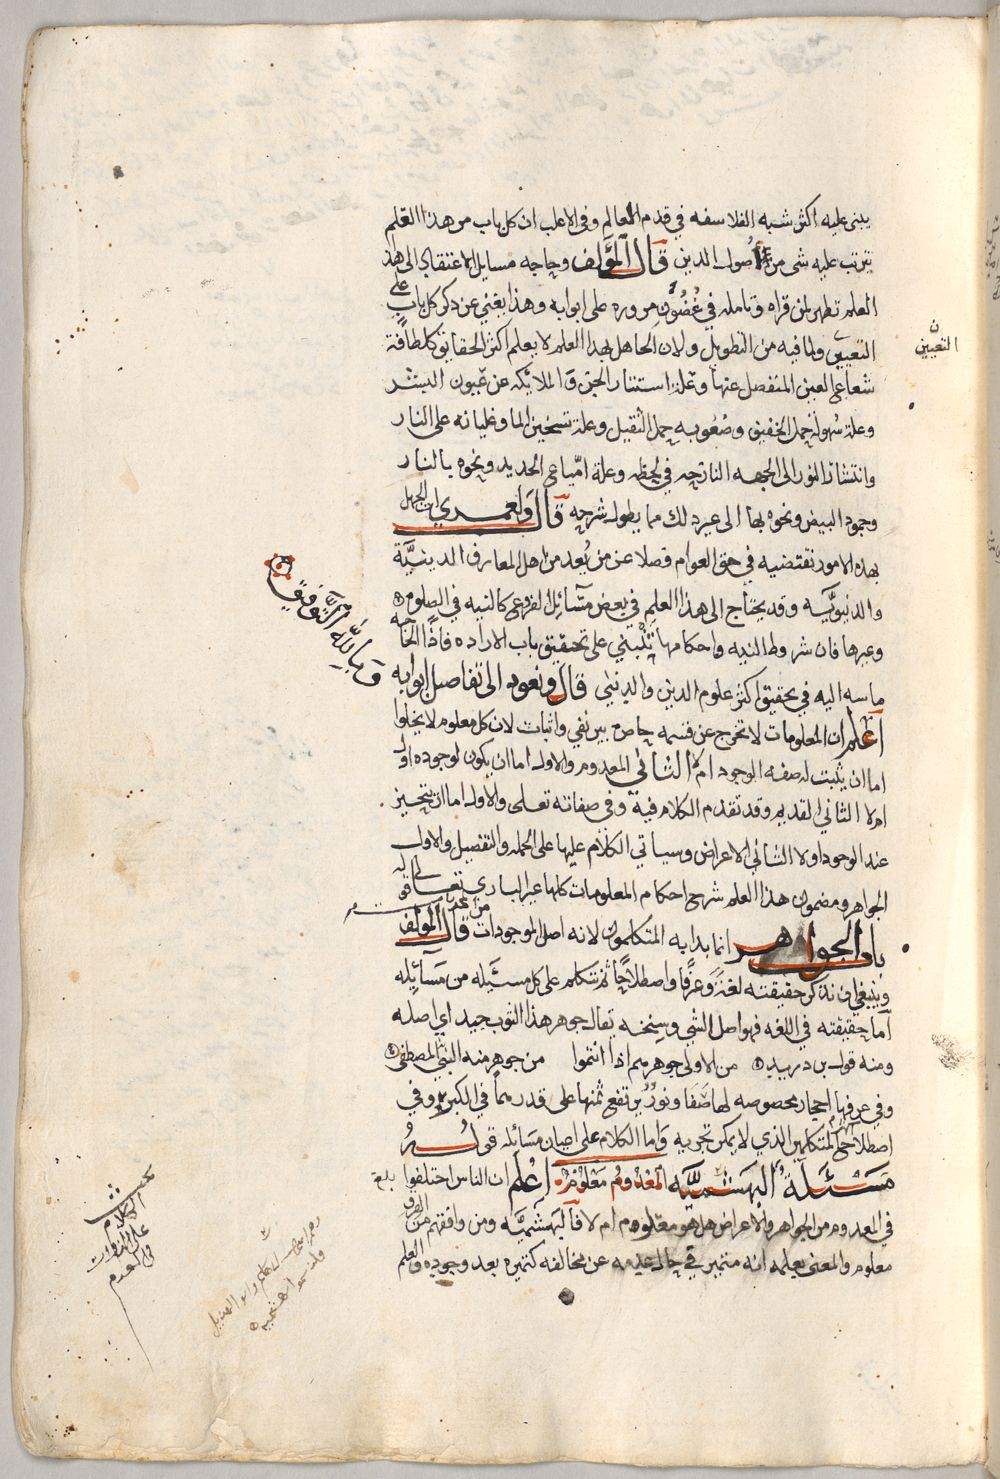 يبنى عليه اكثر شبه الفلاسفه في قدم العالم وفي الاغلب ان كل باب من هذا العلم
يترتب عليه شي من اصول الدين قال المولف وحاجه مسايل الاعتقاد الى هذا
العلم تظهر لمن قراه وتامله في غضون مروره على ابوابه وهذا يغني عن ذكر كل باب على
التعيين ولما فيه من التطويل ولان الجاهل بهذا العلم لا يعلم اكثر الحقايق كلطافة
شعاع العين المنفصل عنها وعلة استتار الجن والملايكه عن عيون البشر
وعلة سهولة حمل الخفيف وصعوبه حمل الثقيل وعلة تسخين الما وغليانه على النار
وانتشار النور الى الجهه النازحه في لحظه وعلة امياع الحديد ونحوه بالنار
وجمود البيض ونحوه بها الى غير ذلك مما يطول شرحه قال ولعمري ان الجهل
بهذه الامور نقتضيه في حق العوام فضلا عن من يعد من اهل المعارف الدينية
والدنيويه وقد يحتاج الى هذا العلم في بعض مسائل الفروع كالنيه في الصلوه
وغيرها فان شروط النيه واحكامها تنبني على تحقيق باب الاراده فاذا الحاجه
ماسه اليه في تحقيق اكثر علوم الدين والدنيى قال ونعود الى تفاصيل ابوابه
اعلم ان المعلومات لا تخرج عن قسمه حاصره بين نفي واثبات لان كل معلوم لا يخلوا
اما ان يثبت له صفه الوجود ام لا الثاني المعدوم والاول اما ان يكون لوجوده اول
ام لا الثاني القديم وقد تقدم الكلام فيه وفي صفاته تعلى والاول اما ان يتحيز
عند الوجود اولا الثاني الاعراض وسياتي الكلام عليها على الجمله والتفصيل والاول
الجواهر ومضمون هذا العلم شرح احكام المعلومات كلها غير الباري تعالى
باب الجواهر انما بدا به المتكلمون لانه اصل الموجودات قال المولف
وينبغي ان نذكر حقيقته لغة وعرفا واصطلاحا ثم نتكلم على كل مسئله من مسائله
اما حقيقته في اللغه فهو اصل الشي وسنخه يقال جوهر هذا الثوب جيد اي اصله
ومنه قول بن دريد من الاولى جوهرهم اذا انتموا من جوهر منه النبي المصطفى
وفي عرفها احجار مخصوصه لها صفا ونور يرتفع ثمنها على قدرهما في الكبر وفي
اصطلاح المتكلمين الذي لا يمكن تجزيه واما الكلام على اعيان مسائله قوله
مسئلة البهشميه المعدوم معلوم اعلم ان الناس اختلفوا
في المعدوم من الجواهر والاعراض هل هو معلوم ام لا فالبهشميه ومن وافقهم من الفرق
معلوم والمعنى بعلمه انه متميز في حال عدمه عن مخالفه كتميزه بعد وجوده والعلم
التعيين
ن
وبالله التوفيق
مبحث
الكلام
على الذوات
في العدم